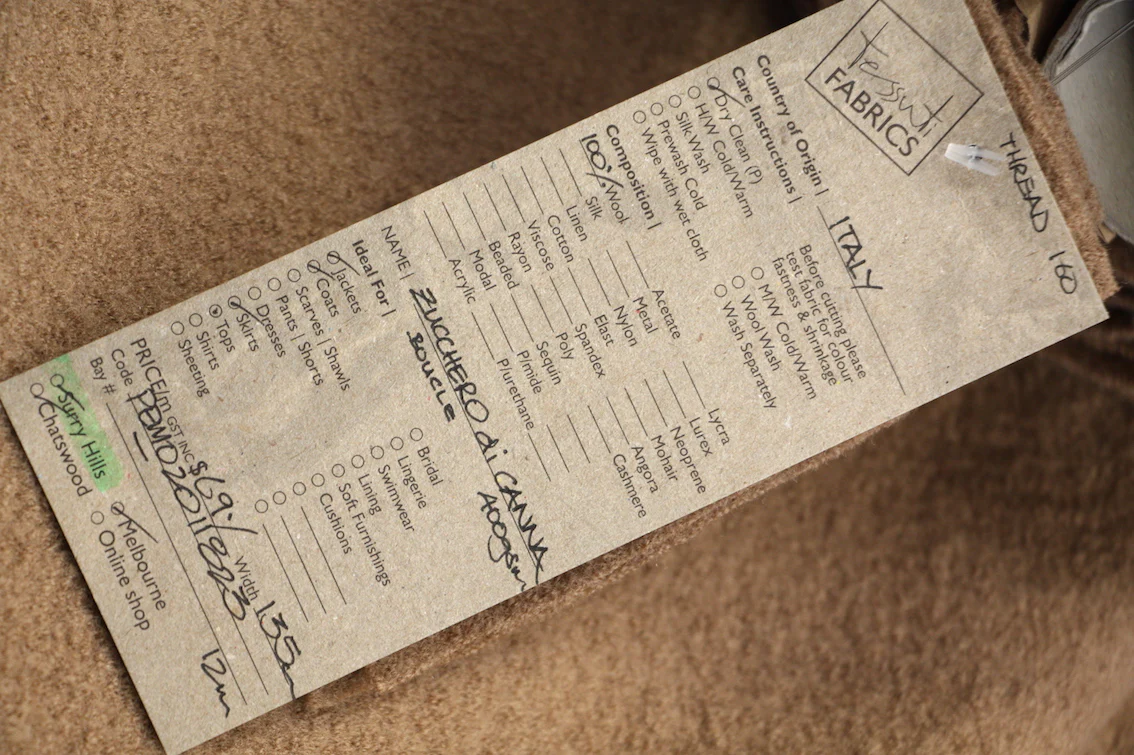 THREAD 160
tessuti
FABRICS
Country of Origin | ITALY
Care Instructions |
Before cutting please
test fabric for colour
fastness & shrinkage
Dry Clean (P)
H/W Cold/Warm
Silk Wash
Prewash Cold
Wipe with wet cloth
M/W Cold/Warm
Wool Wash
Wash Separately
Composition |
100% Wool
Silk
Linen
Cotton
Viscose
Rayon
Beaded
Modal
Acrylic
Acetate
Metal
Nylon
Elast
Spandex
Poly
Sequin
P/mide
P/urethane
Lycra
Lurex
Neoprene
Mohair
Angora
Cashmere
NAME | ZUCCHERO di CANNA
BOUCLE 400gsm
Ideal For |
Jackets
Coats
Scarves | Shawls
Pants | Shorts
Dresses
Skirts
Tops
Shirts
Sheeting
Bridal
Lingerie
Swimwear
Lining
Soft Furnishings
Cushions
PRICE/m GST INC $69./ Width 135
Code
Bay # 12m
Surry Hills
Chatswood
Melbourne
Online shop